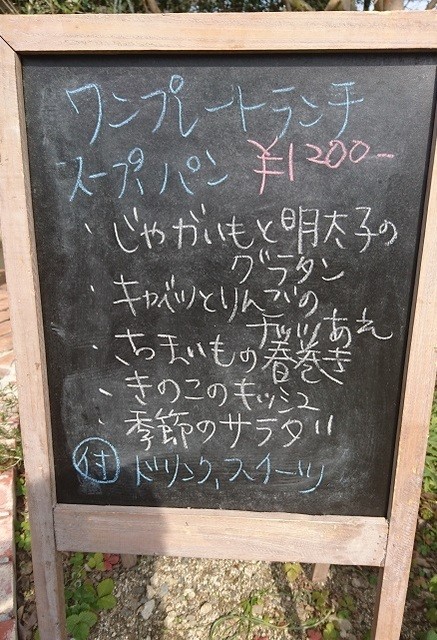 ワンプレートランチ
スープ パン ¥1200-
・じゃがいもと明太子の
グラタン
・キャベツとりんごの
ナッツあえ
・さつまいもの春巻き
・きのこのキッシュ
・季節のサラダ
付 ドリンク、スイーツ